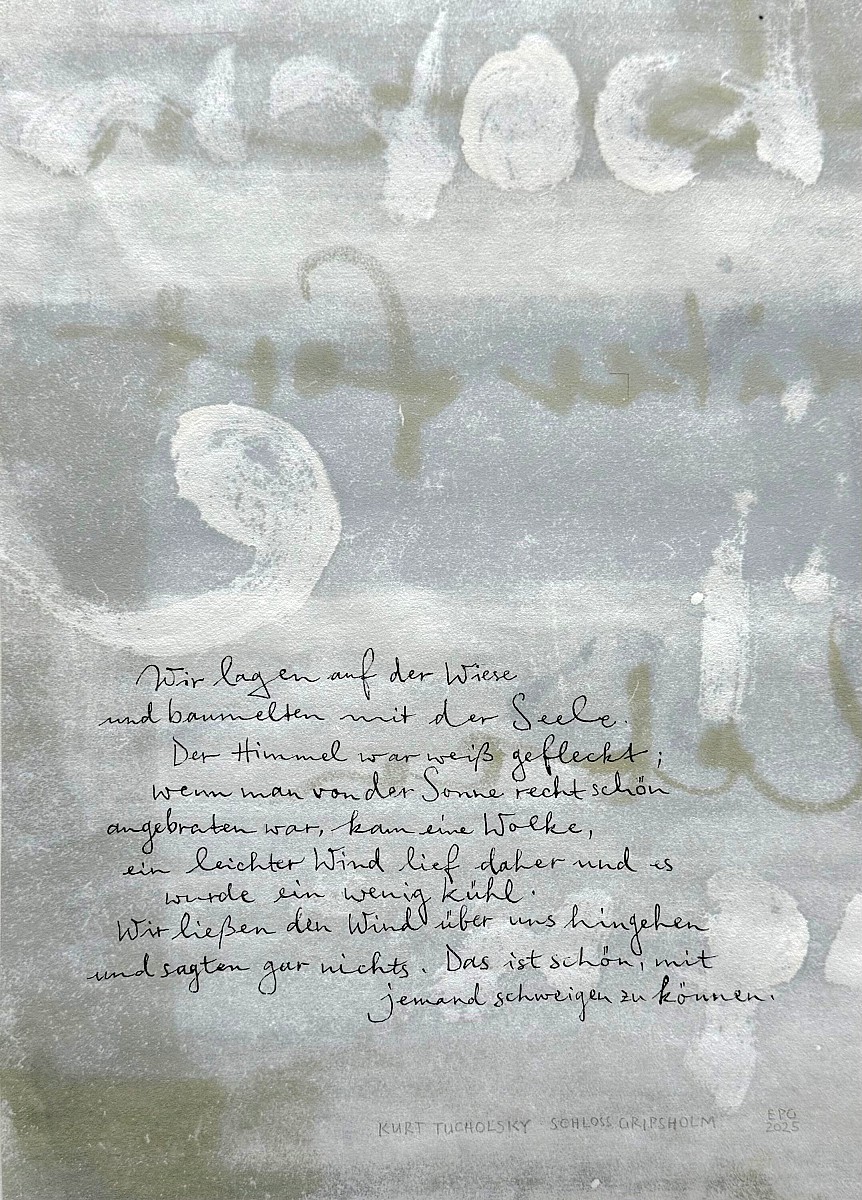 Wir lagen auf der Wiese
und baumelten mit der Seele.
Der Himmel war weiß gefleckt;
wenn man von der Sonne recht schön
angebraten war, kam eine Wolke,
ein leichter Wind lief daher und es
wurde ein wenig kühl.
Wir ließen den Wind über uns hingehen
und sagten gar nichts. Das ist schön, mit
jemand schweigen zu können.
KURT TUCHOLSKY SCHLOSS GRIPSHOLM
EPG
2025